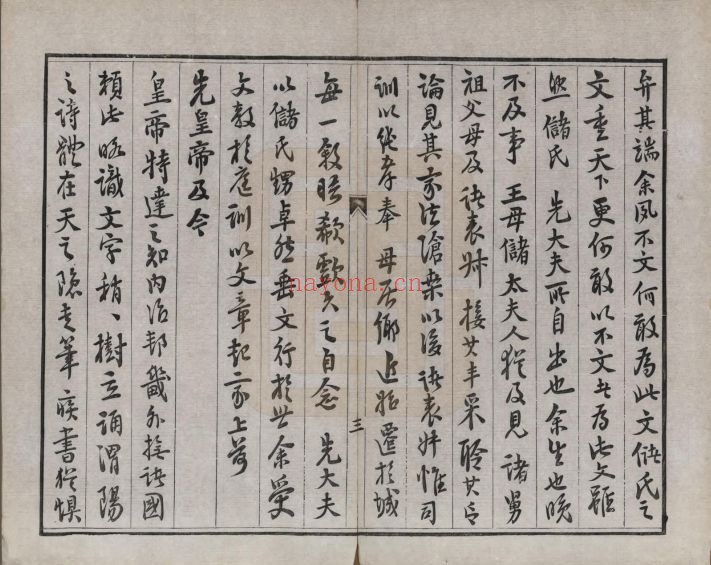 弁其端余夙不文何敢為此文儲氏之
文重天下更何敢以不文者為此文雖
然儲氏 先大夫所自出也余生也晚
不及事 王母儲太夫人猶及見 諸舅
祖父母及諸表叔接其丰采聆其言
論見其家法滄桑以後諸表姊惟司
訓以純孝奉 母居鄉近始遷於城
每一 晤 之自念 先大夫
以儲氏甥卓然垂文行於世余受
文教於庭訓以文章起家上荷
先皇帝及今
皇帝特達之知內治邦畿外撫諸國
賴此略識文字稍、樹立誦渭陽
之詩 在天之隱 筆 書猶惧
三
nayona.cn